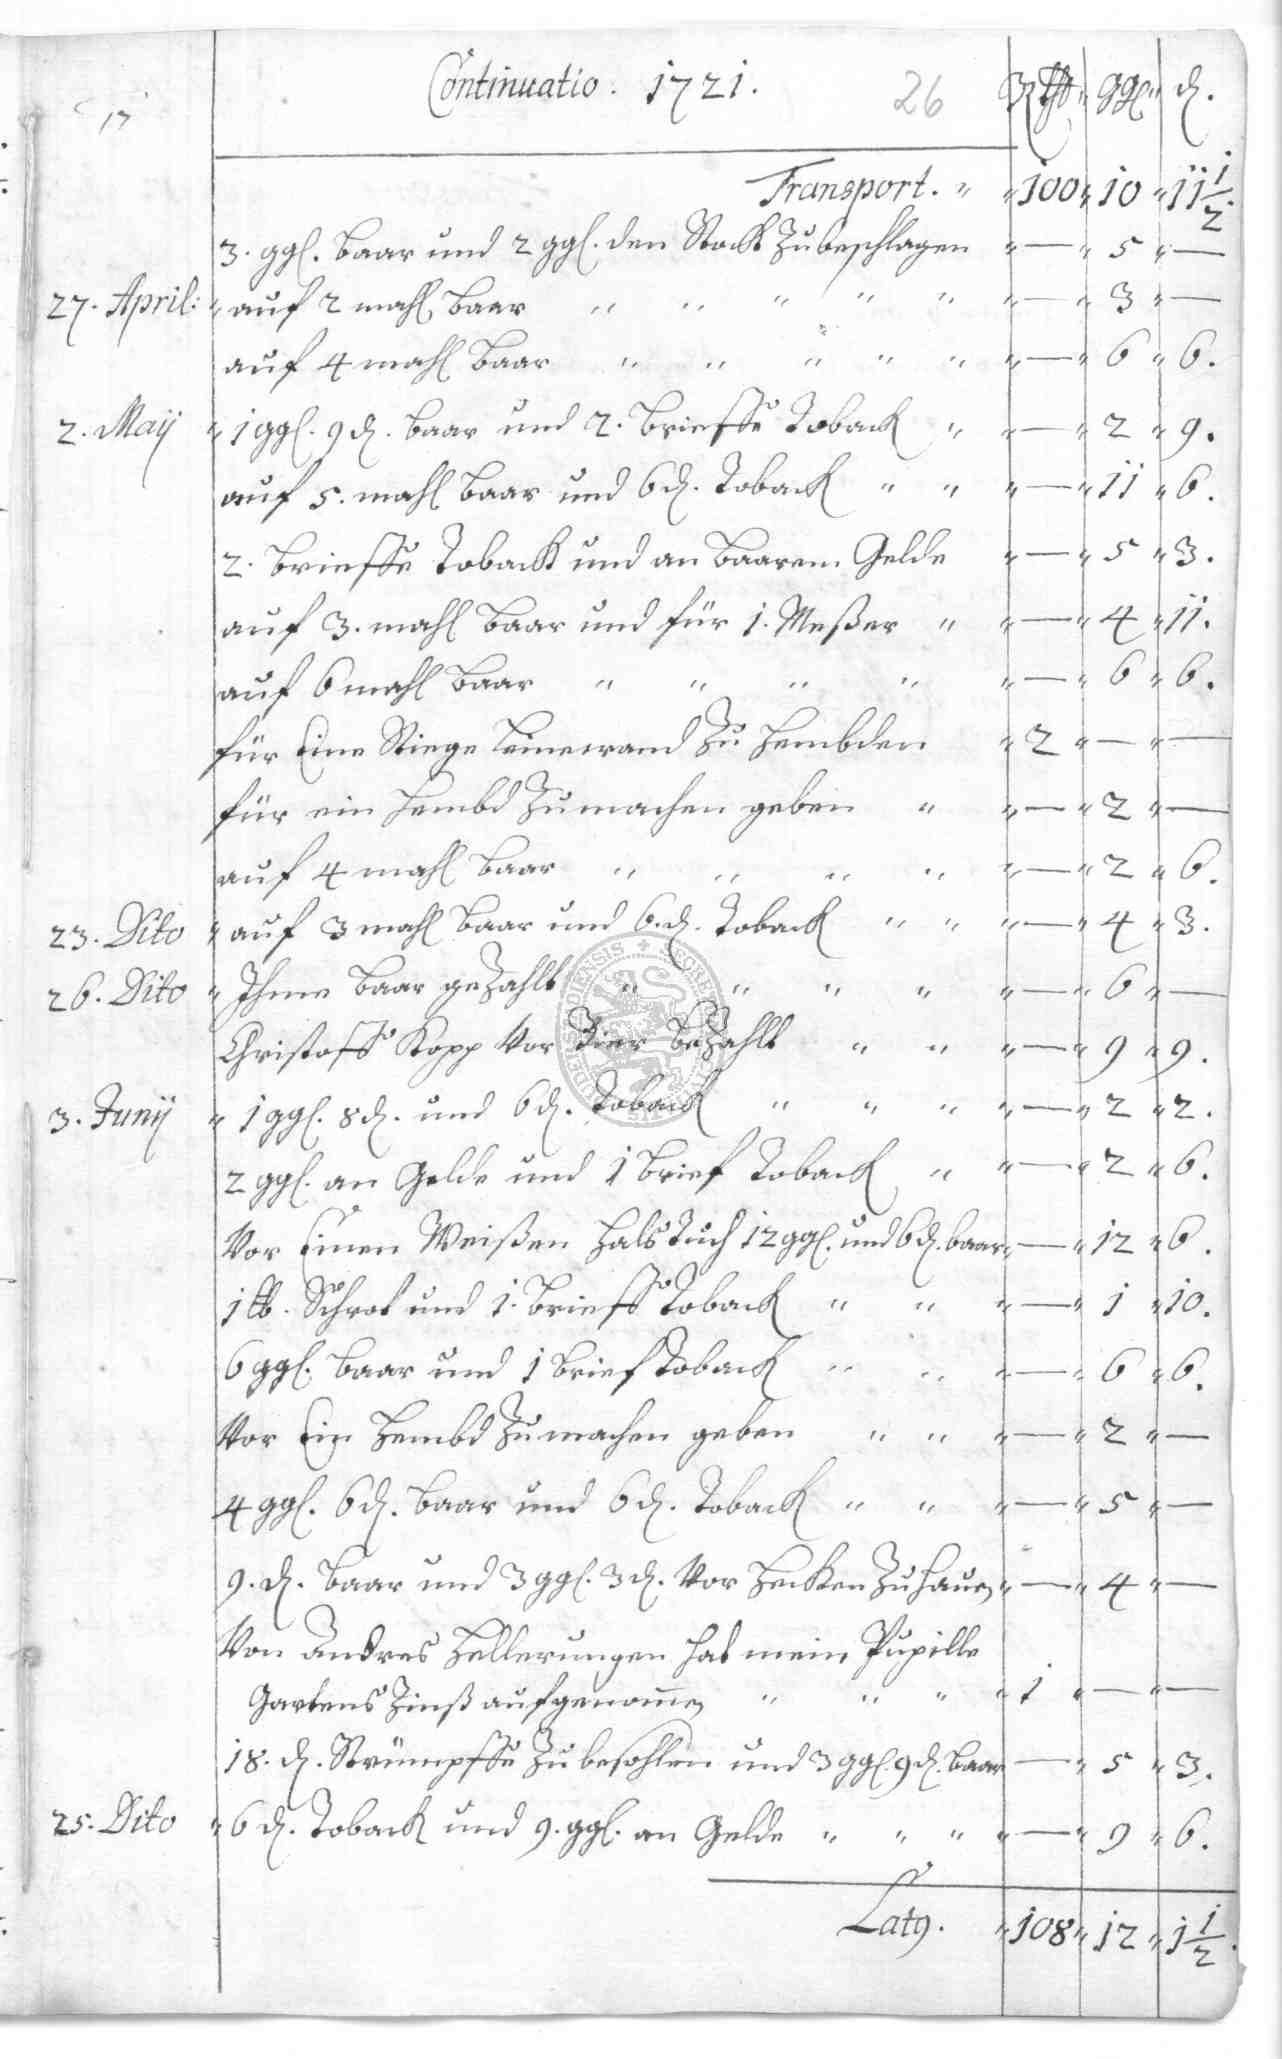 Continuatio. 1721. 26 Rthl. ggl. d.
17
Transport. " " 100 " 10 " 11 1/2.
3. ggl. baar und 2 ggl. den Stock Zubeschlagen " — " 5 " —
27. April: " auf 2 mahl baar " " " " " " — " 3 " —
auf 4 mahl baar " " " " " " — " 6 " 6.
2. Maij " 1 ggl. 9 d. baar und 2. brieffe Toback " " — " 2 " 9.
auf 5. mahl baar und 6 d. Toback " " " — " 11 " 6.
2. brieffe Toback und an baarem Gelde " — " 5 " 3.
auf 3. mahl baar und für 1. Meßer " " — " 4 " 11.
auf 6 mahl baar " " " " " — " 6 " 6.
für Eine Stiege Leinewand Zu Hembden " 2 " — " —
für ein Hembd Zumachen geben " " — " 2 " —
auf 4 mahl baar " " " " " — " 2 " 6.
23. Dito " auf 3 mahl baar und 6. d. Toback " " " — " 4 " 3.
26. Dito " Ihme baar geZahlt " " " " " — " 6 " —
Christoff Kopp Vor Bier beZahlt " " " — " 9 " 9.
3. Junij " 1 ggl. 8 d. und 6 d. Toback " " " " — " 2 " 2.
2 ggl. an Gelde und 1 brief Toback " " — " 2 " 6.
Vor Einen Weißen HalsTuch 12 ggl. und 6 d. baar " — " 12 " 6.
1 lb. Schrot und 1. brieff Toback " " " — " 1 " 10.
6 ggl. baar und 1 brief Toback " " " — " 6 " 6.
Vor Ein Hembd Zumachen geben " " " — " 2 " —
4 ggl. 6 d. baar und 6 d. Toback " " " — " 5 " —
9. d. baar und 3 ggl. 3 d. Vor Hecken Zuhauen " — " 4 " —
Von Andres Hellerungen hat mein Pupille
Gartens Zinß aufgenom̄en " " " " 1 " — " —
18. d. Strümpffe Zu besohlen und 3 ggl. 9 d. baar — " 5 " 3.
25. Dito " 6 d. Toback und 9. ggl. an Gelde " " " " — " 9 " 6.
Lat9. " 108 " 12 " 1 1/2.